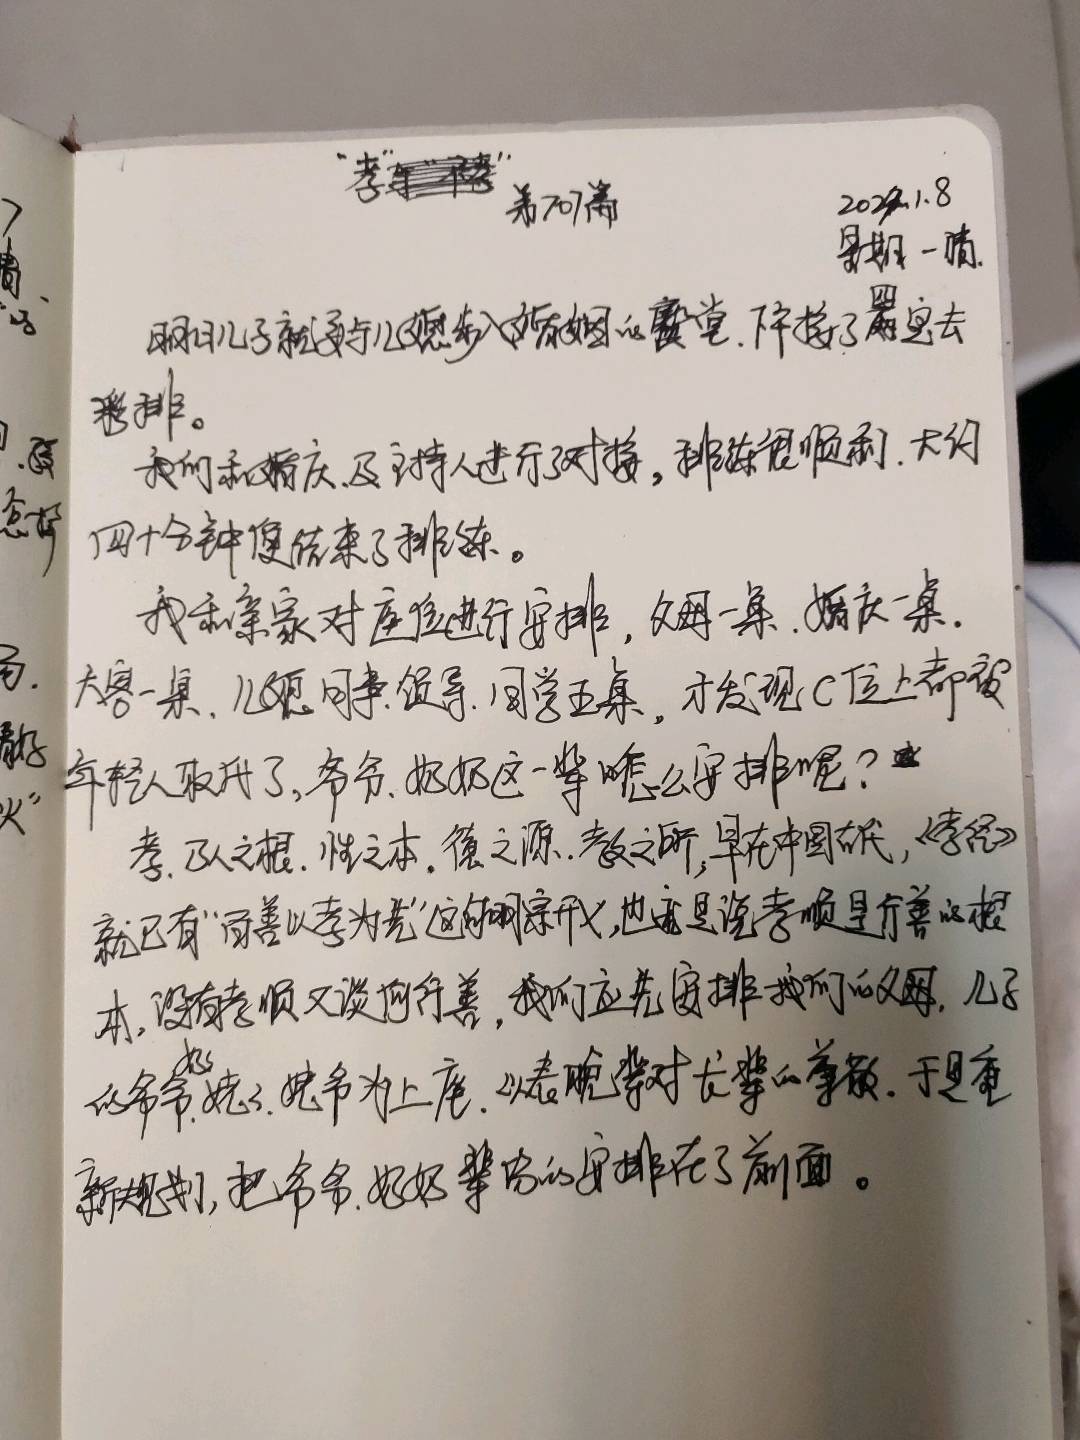 "孝"
第707篇
2024.1.8
星期一晴.
明日儿子就要与儿媳步入婚姻的殿堂.下午接了 去
彩排。
我们和婚庆.及主持人进行了对接,排练很顺利.大约
四十分钟便结束了排练。
我和亲家对座位进行安排,父母一桌.婚庆一桌.
大客一桌.儿媳同事.领导.同学五桌,才发现C位上都被
年轻人取代了,爷爷.奶奶这一辈咋怎么安排呢?
孝.乃人之根.性之本.德之源.教之所,早在中国古代,《孝经》
就已有"百善以孝为先"这的开宗明义,也就是说孝顺是行善的根
本,没有孝顺又谈何行善,我们应先安排我们的父母.儿子
的爷爷.奶奶.姥姥.姥爷为上座.以表晚辈对长辈的尊敬.于是重
新规划,把爷爷.奶奶辈份的安排在了前面。